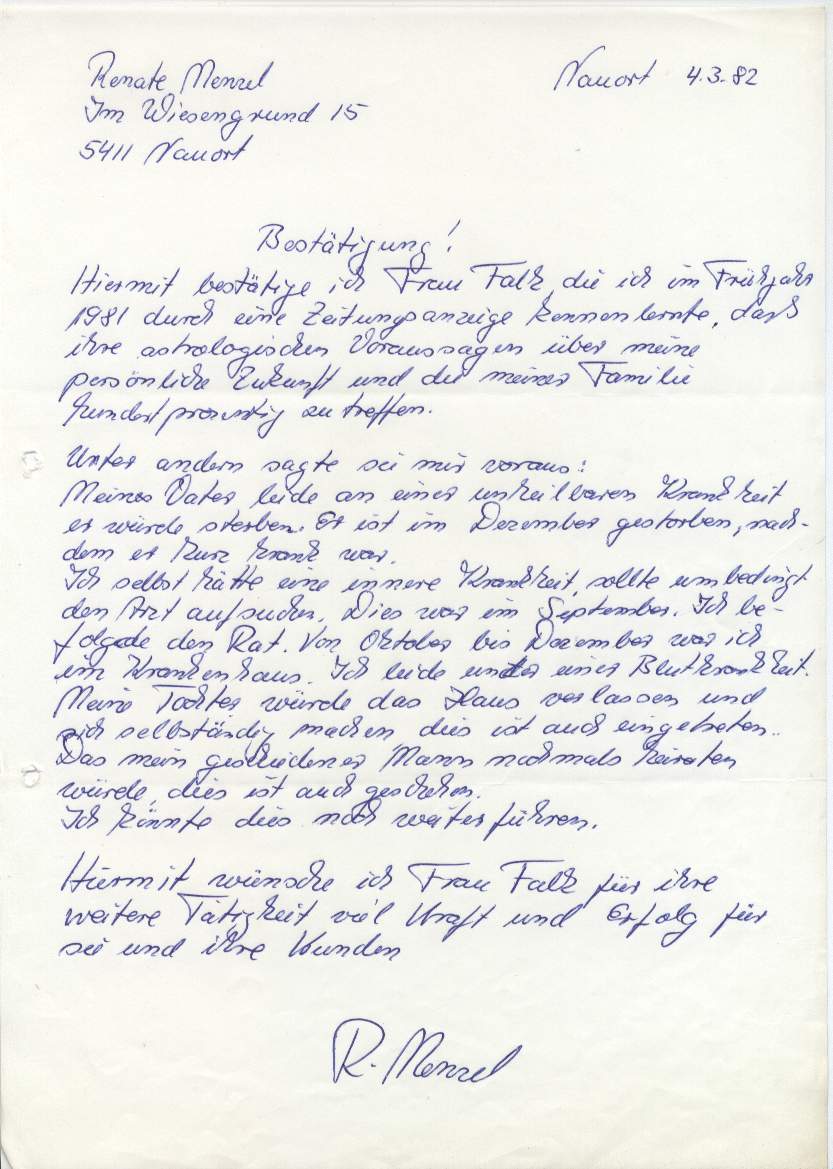 Renate Menzel
Nauort 4.3.82
Im Wiesengrund 15
5411 Nauort
Bestätigung!
Hiermit bestätige ich Frau Falk, die ich im Frühjahr
1981 durch eine Zeitungsanzeige kennenlernte, daß
ihre astrologischen Voraussagen über meine
persönliche Zukunft und die meiner Familie
hundertprozentig zutreffen.
Unter andern sagte sie mir voraus:
Meines Vater leide an einer unheilbaren Krankheit
er würde sterben. Er ist im Dezember gestorben, nach-
dem er kurz krank war.
Ich selbst hätte eine innere Krankheit, sollte umbedingt
den Arzt aufsuchen. Dies war im September. Ich be-
folgede den Rat. Von Oktober bis Dezember war ich
im Krankenhaus. Ich leide unter einer Blutkrankheit.
Meine Tochter würde das Haus verlassen und
sich selbständig machen dies ist auch eingetreten..
Das mein geschiedener Mann nochmals heiraten
würde, dies ist auch geschehen.
Ich könnte dies noch weiter führen.
Hiermit wünsche ich Frau Falk für ihre
weitere Tätigkeit viel Kraft und Erfolg für
sie und ihre Kunden
R. Menzel